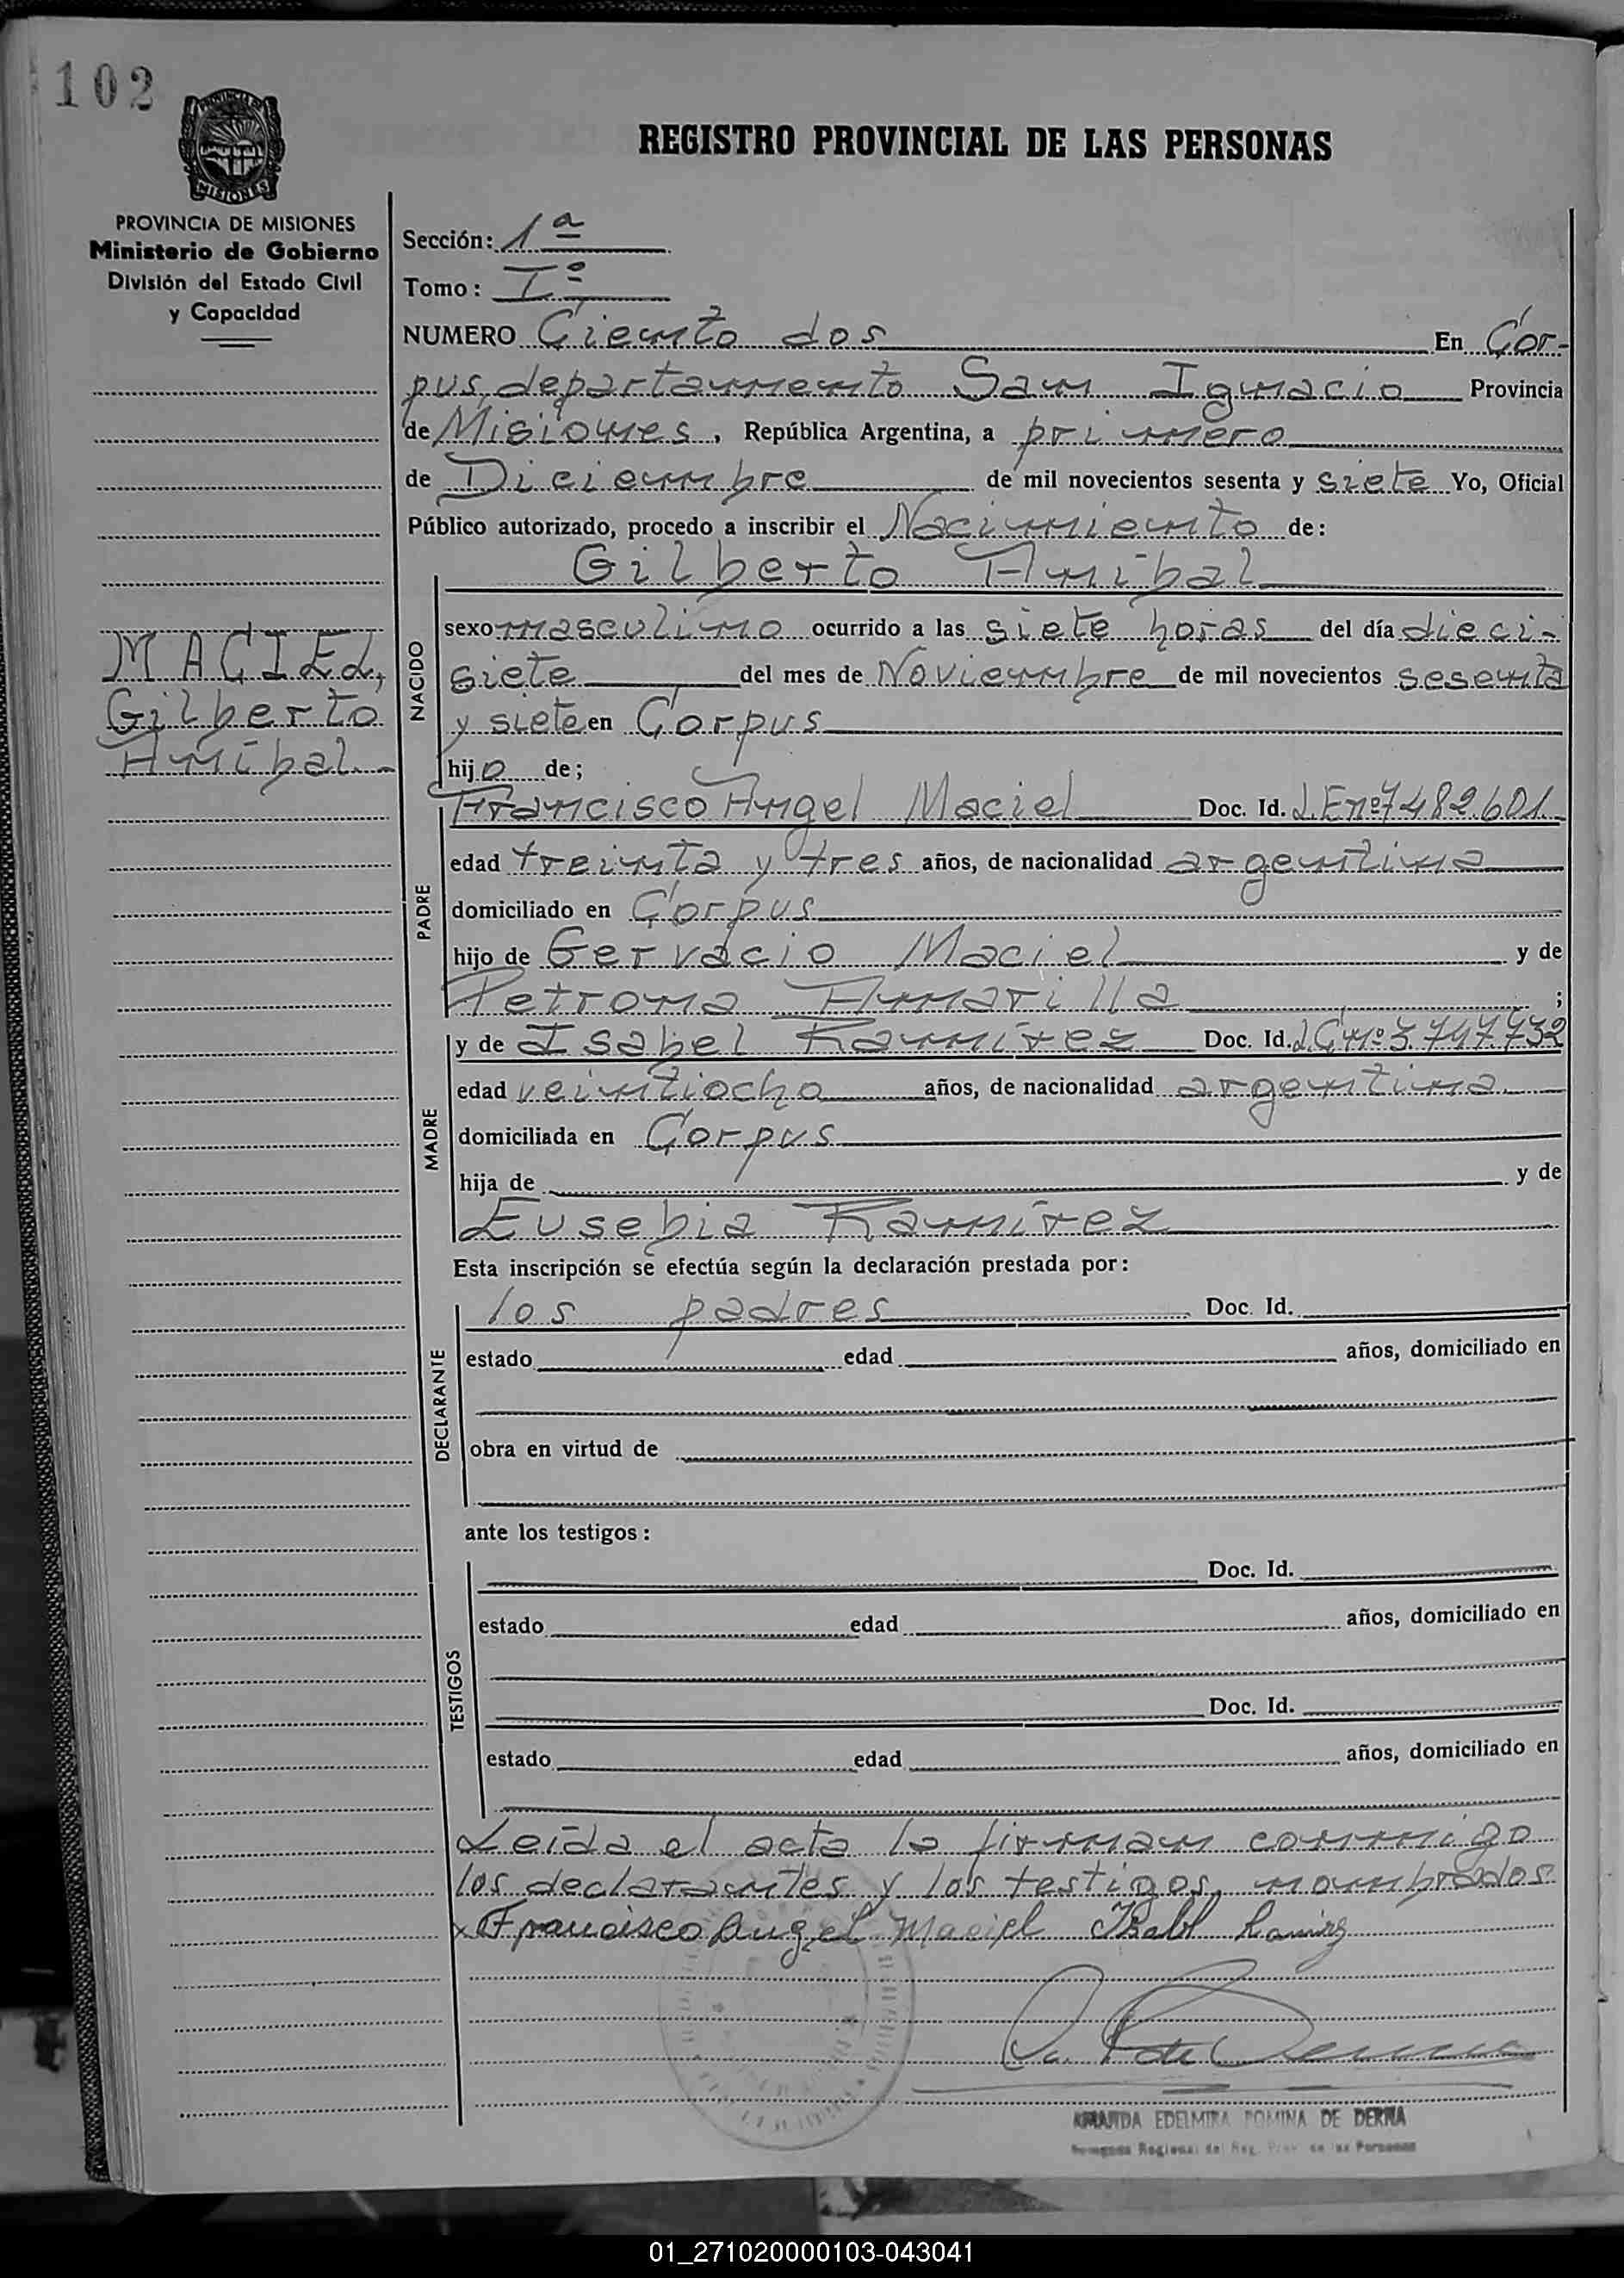 102
REGISTRO PROVINCIAL DE LAS PERSONAS
PROVINCIA DE
MISIONES
PROVINCIA DE MISIONES
Ministerio de Gobierno
División del Estado Civil
y Capacidad
Sección: 1ª
Tomo: Iº
NUMERO Ciento dos En Cor-
pus, departamento San Ignacio Provincia
de Misiones, República Argentina, a primero
de Diciembre de mil novecientos sesenta y siete Yo, Oficial
Público autorizado, procedo a inscribir el Nacimiento de:
Gilberto Aníbal
MACIEL,
Gilberto
Aníbal.-
NACIDO
sexo masculino ocurrido a las siete horas del día dieci-
siete del mes de Noviembre de mil novecientos sesenta
y siete en Corpus
hijo de;
PADRE
Francisco Angel Maciel Doc. Id. L.E.nº7482.601.
edad treinta y tres años, de nacionalidad argentina
domiciliado en Corpus
hijo de Gervacio Maciel y de
Petrona Amarilla ;
MADRE
y de Isabel Ramírez Doc. Id. L.C.nº3.747.732
edad veintiocho años, de nacionalidad argentina.
domiciliada en Corpus
hija de y de
Eusebia Ramírez
Esta inscripción se efectúa según la declaración prestada por:
DECLARANTE
los padres Doc. Id.
estado edad años, domiciliado en
obra en virtud de
ante los testigos:
TESTIGOS
Doc. Id.
estado edad años, domiciliado en
Doc. Id.
estado edad años, domiciliado en
Leída el acta la firman conmigo
los declarantes y los testigos, nombrados
x Francisco Angel Maciel Isabl Ramirez
AMANDA EDELMIRA ROMINA DE DERNA
Regional del Reg. Prov. de las Personas
01_271020000103-043041